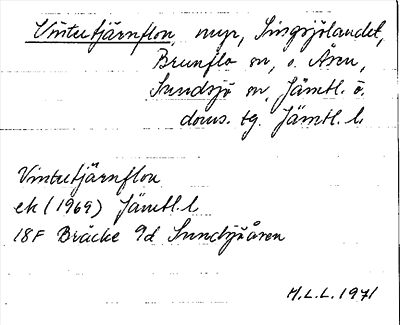 Vintertjärnflon, myr, Singsjölandet,
Brunflo sn, o. Åsen,
Sundsjö sn, Jämtl. ö.
doms. tg. Jämtl. l.
Vintertjärnflon
ek (1969) Jämtl. l
18F Bräcke 9d Sundsjöåsen
M.L.L. 1971